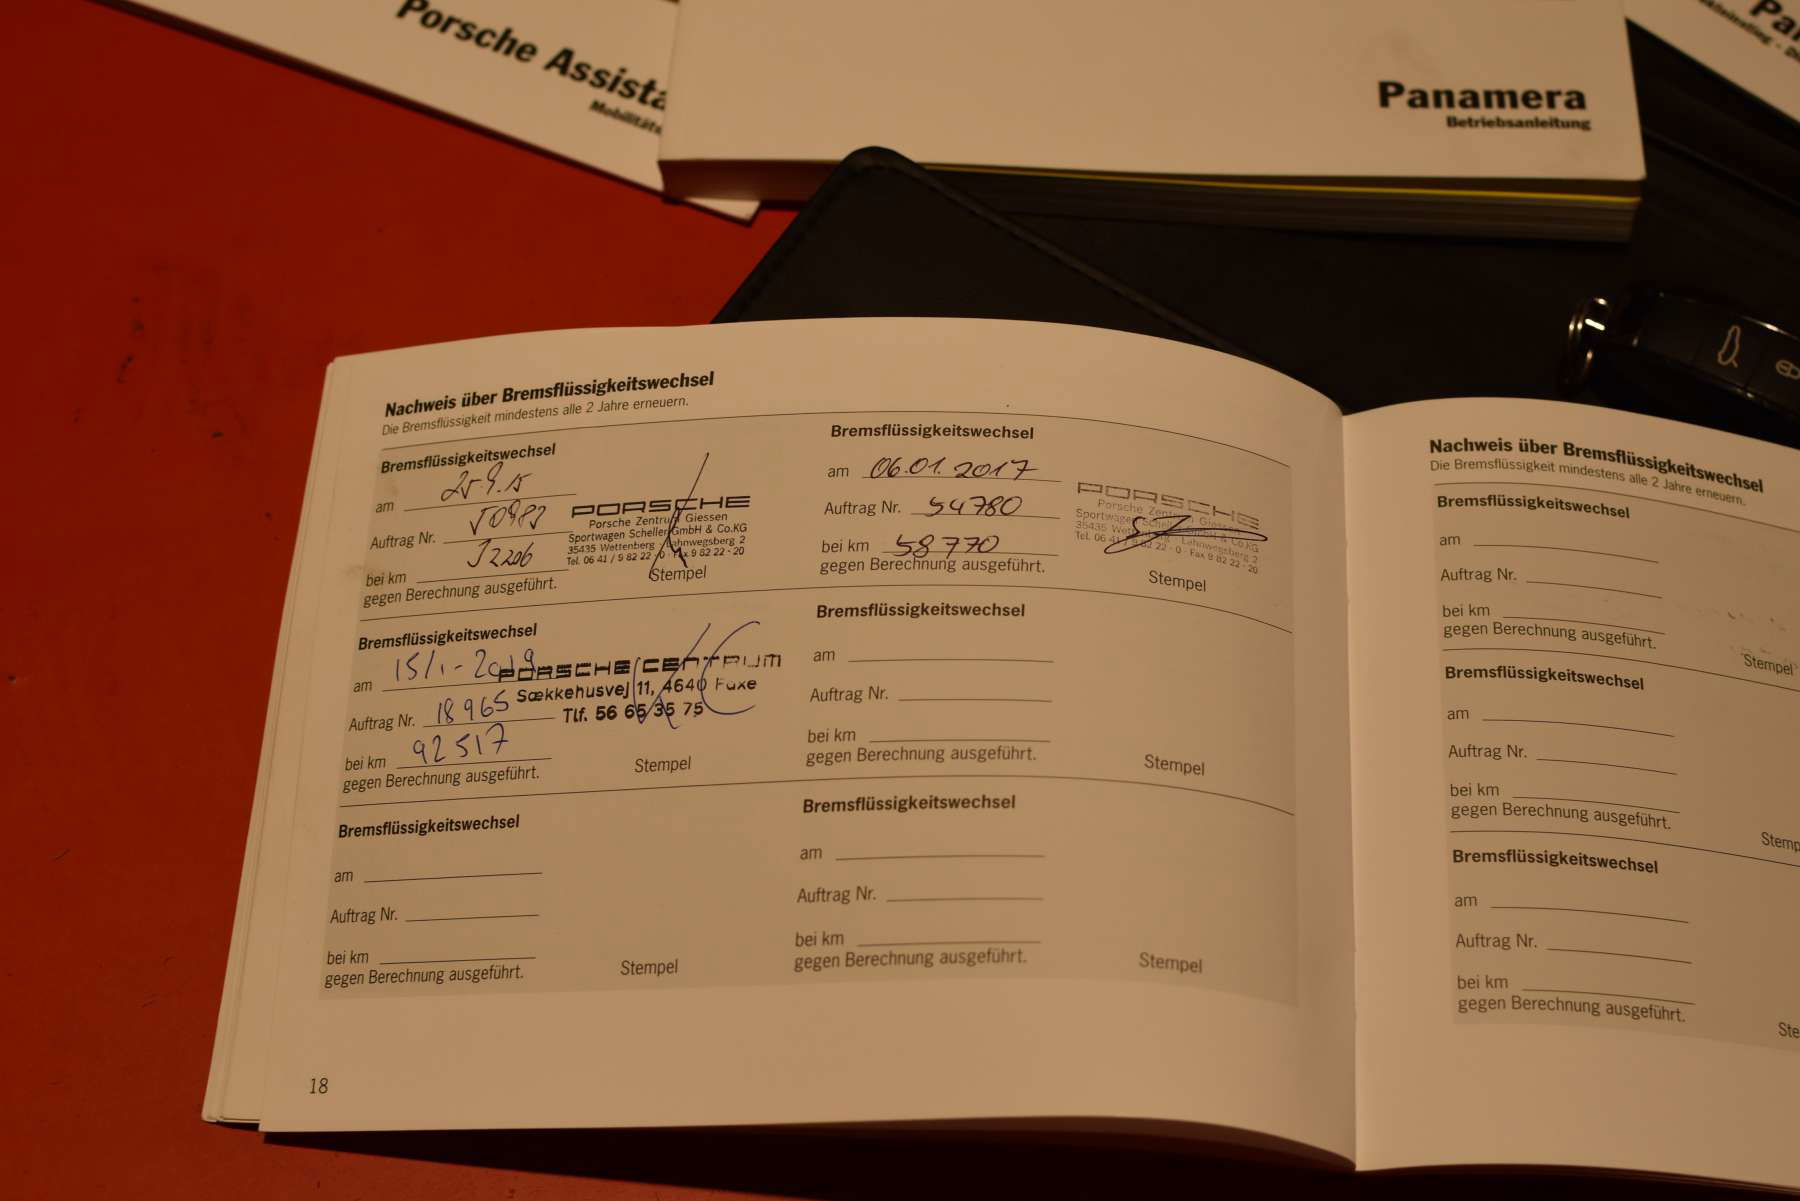 Porsche Assista
Mobilitäts
Panamera
Betriebsanleitung
Pa
Nachweis über Bremsflüssigkeitswechsel
Die Bremsflüssigkeit mindestens alle 2 Jahre erneuern.
Bremsflüssigkeitswechsel
am 25.9.15
Auftrag Nr.
bei km
gegen Berechnung ausgeführt.
PORSCHE
Porsche Zentrum Giessen
Sportwagen Scheller GmbH & Co.KG
35435 Wettenberg · Lahnwegsberg 2
Tel. 06 41 / 9 82 22 - 0 · Fax 9 82 22 - 20
Stempel
Bremsflüssigkeitswechsel
am 06.01.2017
Auftrag Nr. 54780
bei km 58770
gegen Berechnung ausgeführt.
PORSCHE
Porsche Zentrum Giessen
Sportwagen Scheller GmbH & Co.KG
35435 Wettenberg · Lahnwegsberg 2
Tel. 06 41 / 9 82 22 - 0 · Fax 9 82 22 - 20
Stempel
Bremsflüssigkeitswechsel
am 15/1-2019
Auftrag Nr. 18965
bei km 92517
gegen Berechnung ausgeführt.
PORSCHE CENTRUM
Sækkehusvej 11, 4640 Faxe
Tlf. 56 65 35 75
Stempel
Bremsflüssigkeitswechsel
am
Auftrag Nr.
bei km
gegen Berechnung ausgeführt.
Stempel
Bremsflüssigkeitswechsel
am
Auftrag Nr.
bei km
gegen Berechnung ausgeführt.
Stempel
Bremsflüssigkeitswechsel
am
Auftrag Nr.
bei km
gegen Berechnung ausgeführt.
Stempel
18
Nachweis über Bremsflüssigkeitswechsel
Die Bremsflüssigkeit mindestens alle 2 Jahre erneuern.
Bremsflüssigkeitswechsel
am
Auftrag Nr.
bei km
gegen Berechnung ausgeführt.
Stempel
Bremsflüssigkeitswechsel
am
Auftrag Nr.
bei km
gegen Berechnung ausgeführt.
Stemp
Bremsflüssigkeitswechsel
am
Auftrag Nr.
bei km
gegen Berechnung ausgeführt.
Ste